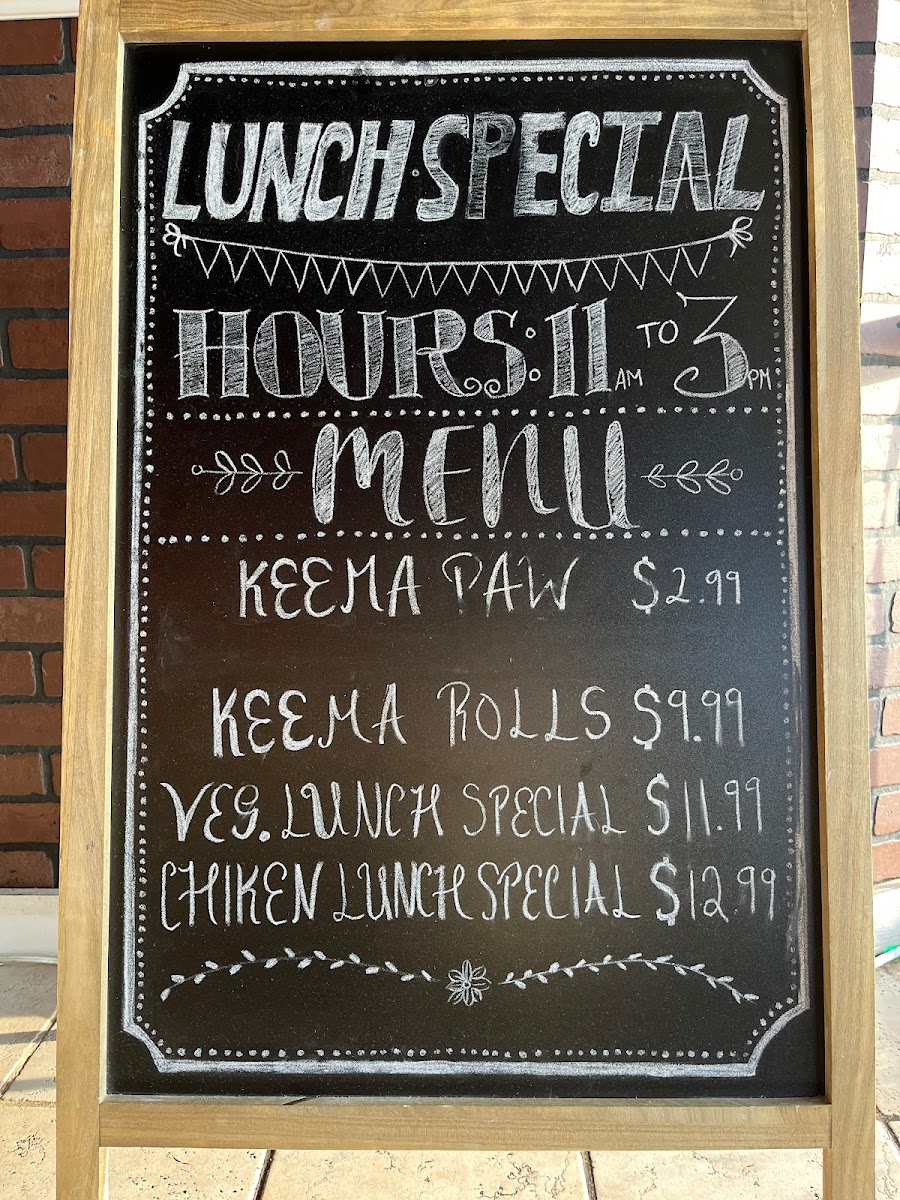 LUNCH·SPECIAL
HOURS: 11 AM TO 3 PM
MENU
KEEMA PAW $2.99
KEEMA ROLLS $9.99
VEG. LUNCH SPECIAL $11.99
CHIKEN LUNCH SPECIAL $12.99